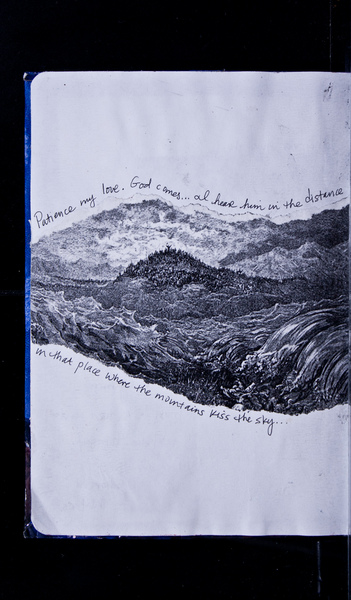 Patience my love. God comes... I hear him in the distance
in that place where the mountains kiss the sky...